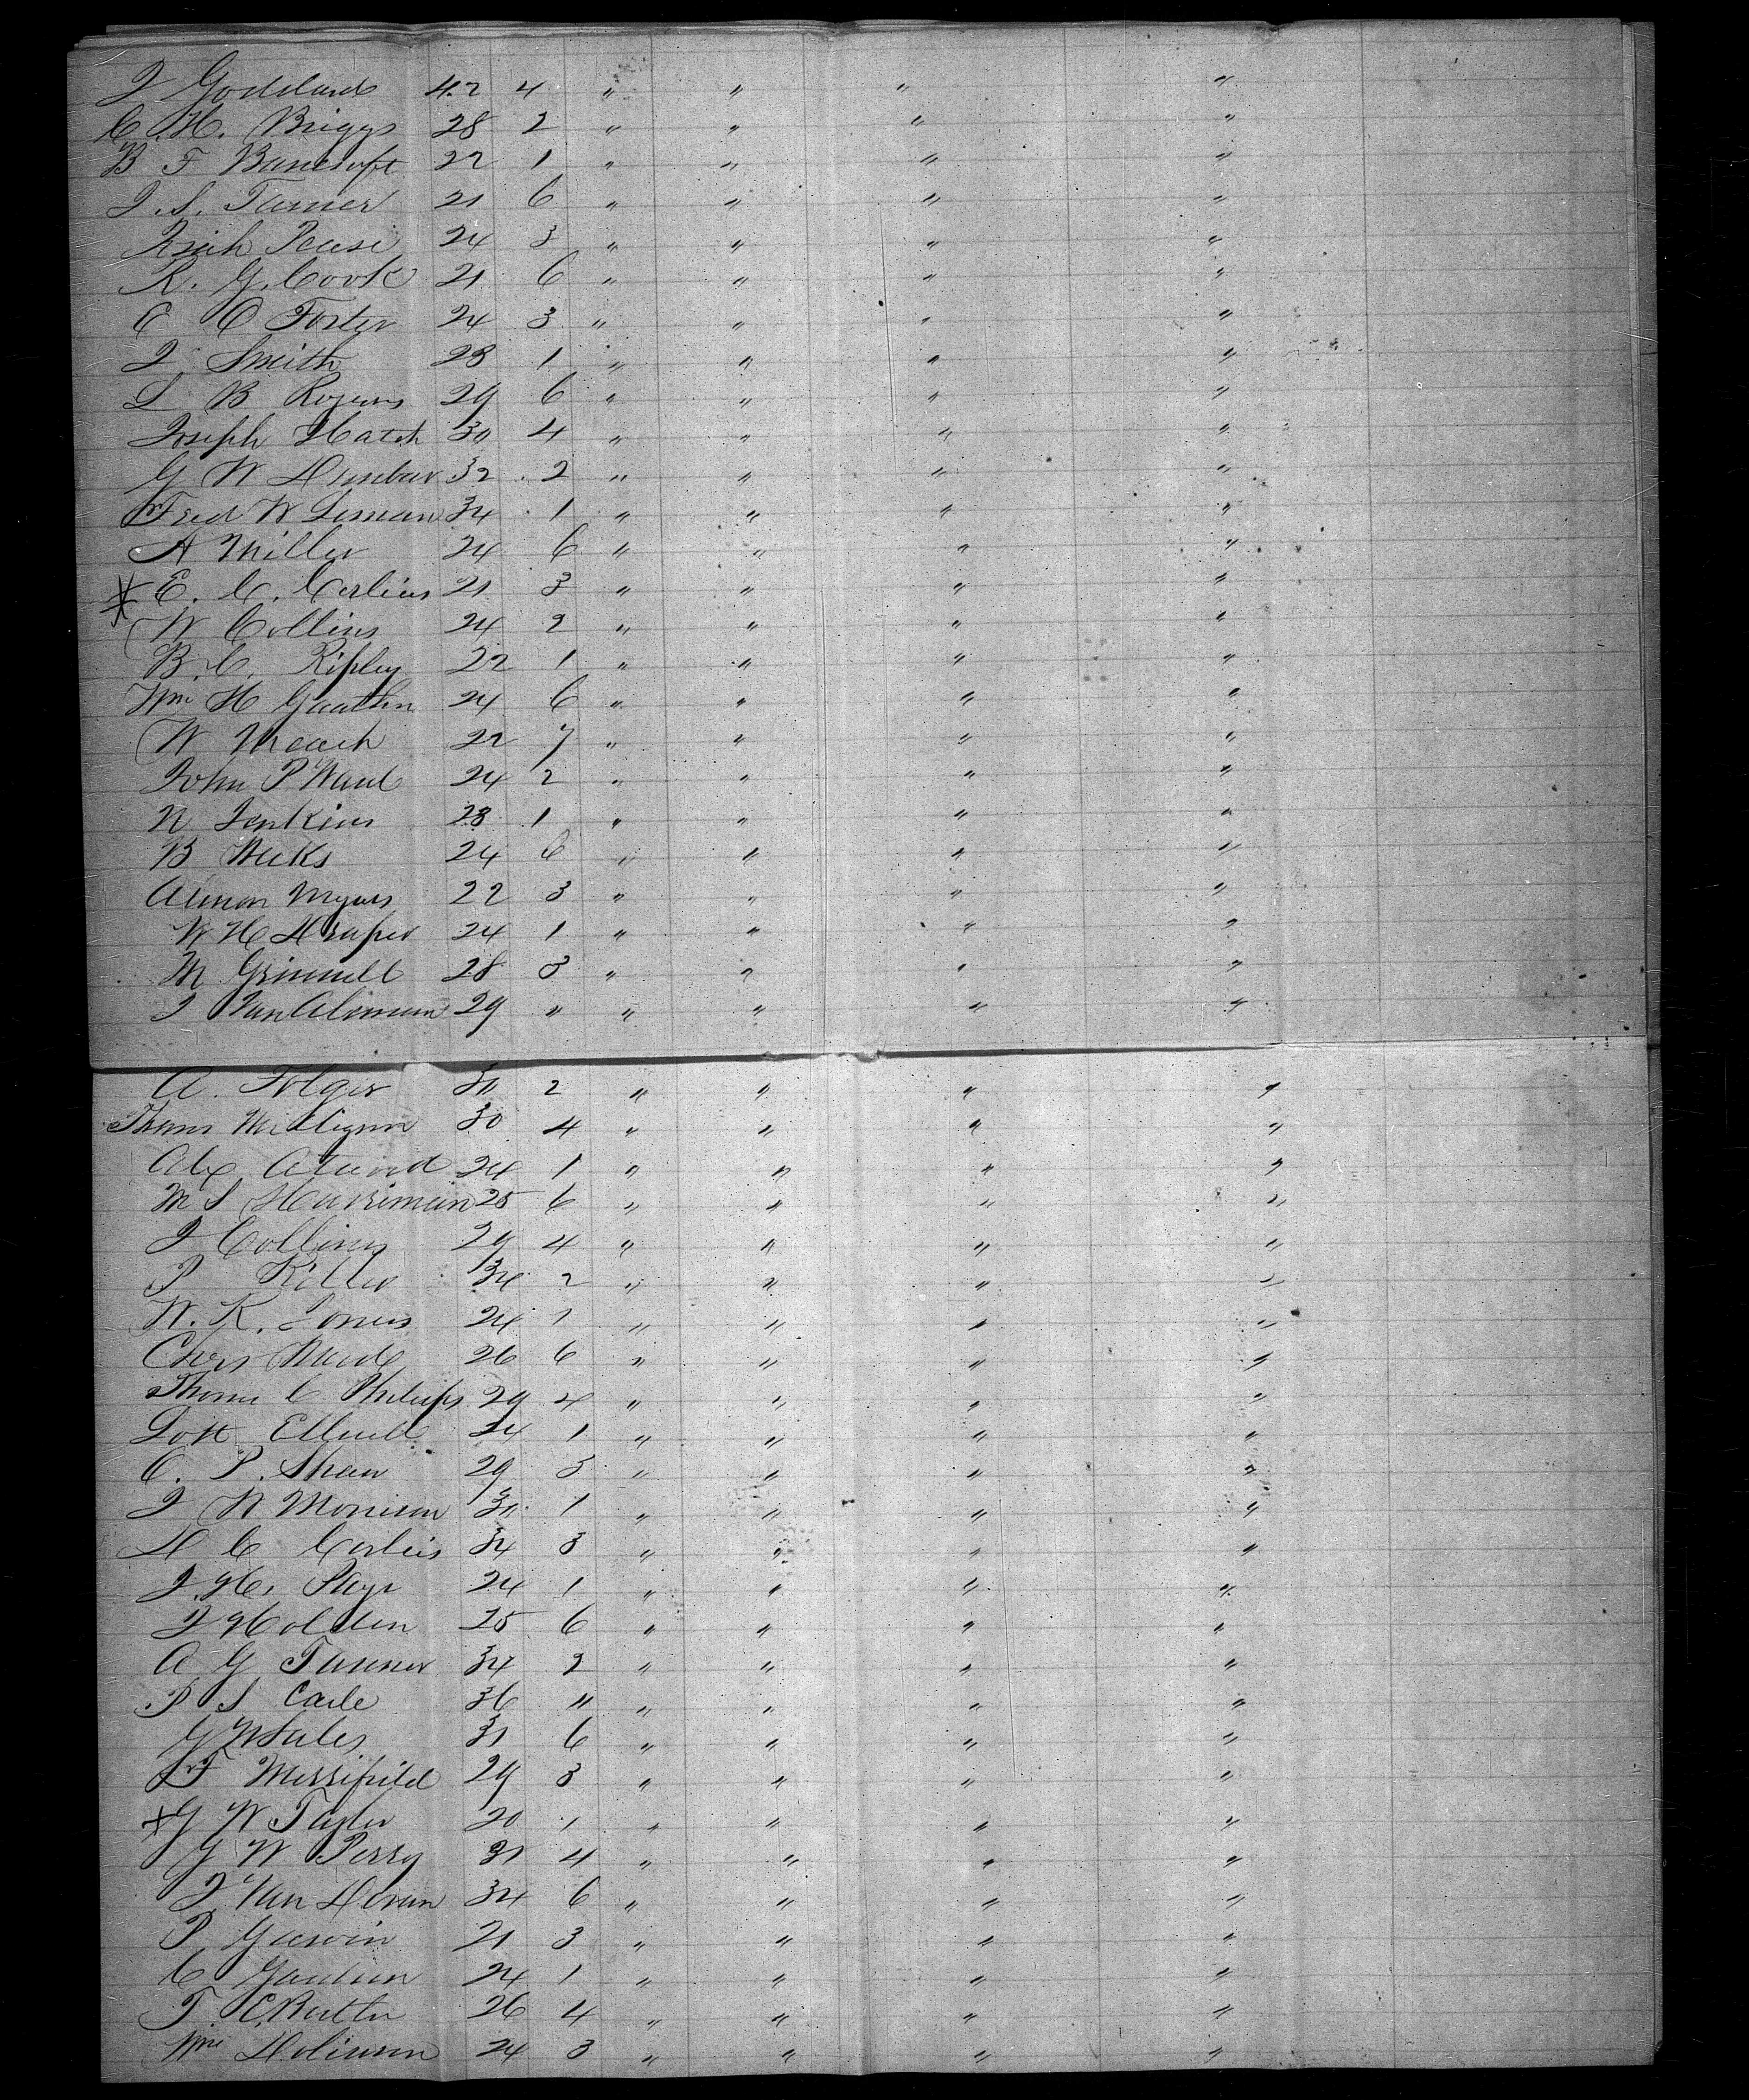 J Goddard 42 4 " " " "
C. H. Briggs 28 2 " " " "
B F Bancroft 22 1 " " " "
J. S. Turner 21 6 " " " "
Pease 24 3 " " " "
R. G. Cook 21 6 " " " "
C C Foster 24 3 " " " "
J. Smith 23 1 " " " "
L B Rogers 29 6 " " " "
Joseph Hatch 30 4 " " " "
G W Dunbar 32 2 " " " "
Fred W Leman 34 1 " " " "
A Miller 24 6 " " " "
* E. C. Corlius 21 3 " " " "
W Collins 24 2 " " " "
B. C. Ripley 22 1 " " " "
Wm H 24 6 " " " "
W Meach 22 7 " " " "
John P Ward 24 2 " " " "
N Jenkins 23 1 " " " "
B Weeks 24 6 " " " "
Almon Myers 22 3 " " " "
W H Draper 24 1 " " " "
M Grinnell 28 3 " " " "
J Van 29 " " " " "
A. Folger 30 2 " " " "
30 4 " " " "
Alex Atwood 24 1 " " " "
M S Harriman 25 6 " " " "
J Collins 29 4 " " " "
P Killer 34 2 " " " "
W. K. Jones 24 1 " " " "
Chas Mead 26 6 " " " "
Thomas C Philips 29 4 " " " "
Lott Ellwell 24 1 " " " "
C. P. Shaw 29 3 " " " "
J N Morrison 30 1 " " " "
D C Corlius 34 3 " " " "
J. H. Page 24 1 " " " "
J Holden 25 6 " " " "
A G Tanner 34 2 " " " "
P S Carle 36 " " " " "
G W Sales 31 6 " " " "
F Merrifield 29 3 " " " "
x G W Taylor 20 1 " " " "
G W Perry 31 4 " " " "
J Van Doran 34 6 " " " "
P Garvin 21 3 " " " "
C 24 1 " " " "
T C. Butler 26 4 " " " "
Wm 24 3 " " " "